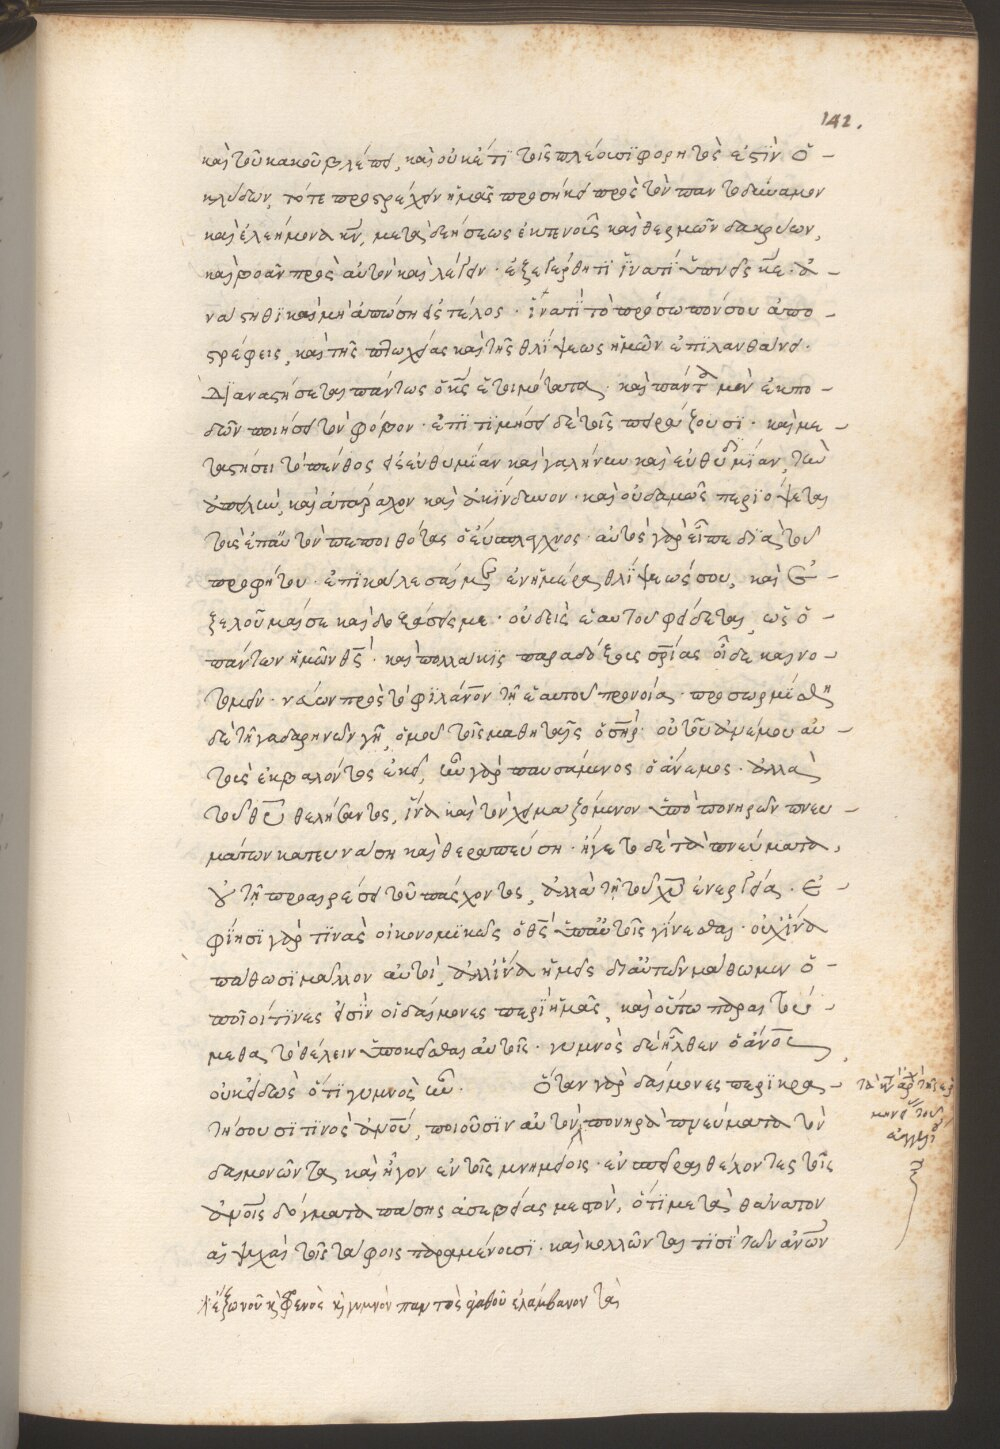 142.
καὶ τοῦ κακοῦ βλέπει, καὶ οὐκέτι τοῖς πλέουσι φορητὸς ἐστὶν ὁ
κλύδων, τότε προστρέχειν ἡμᾶς προσήκει πρὸς τὸν παντοδύναμον
καὶ ἐλεήμονα κν, μετὰ δεήσεως ἐκτενοῦς καὶ θερμῶν δακρύων,
καὶ βοᾶν πρὸς αὐτὸν καὶ λέγειν· ἐξεγέρθητι ἵνατί ὑπνοῖς κε· ἀ-
νάστηθι καὶ μὴ ἀπώσῃ εἰς τέλος· ἵνατί τὸ πρόσωπόν σου ἀπο-
στρέφεις, καὶ τῆς πτωχείας καὶ τῆς θλίψεως ἡμῶν ἐπιλανθάνει·
Διαναστήσεται πάντως ὁ κς ἑτοιμότατα· καὶ πάντα μὲν ἐκπο-
δῶν ποιήσει τὸν φόβον· ἐπιτιμήσει δὲ τοῖς πειράζουσι· καὶ με-
ταστήσει τὸ πένθος εἰς εὐθυμίαν καὶ γαλήνην καὶ εὐθυμίαν, τὴν
ἀπλην, καὶ ἀτάραχον καὶ ἀκίνδυνον· καὶ οὐδαμῶς περιόψεται
τοὺς ἐπ' αὐτὸν πεποιθότας ὁ εὔσπλαγχνος· αὐτὸς γὰρ εἶπε διὰ τοῦ
προφήτου· ἐπικάλεσαί με ἐν ἡμέρᾳ θλίψεώς σου, καὶ ἐ-
ξελοῦμαί σε καὶ δοξάσεις με· οὐδεὶς ἑαυτοῦ φείδεται, ὡς ὁ
πάντων ἡμῶν θς· καὶ πολλάκις παραδόξους σρίας οἶδε καινο-
τομεῖν· νεύων πρὸς τὸ φιλάνον τῇ ἑαυτοῦ προνοίᾳ· προσωρμίσθη
δὲ τῇ γαδαρηνῶν γῇ, ὁμοῦ τοῖς μαθηταῖς ὁ σηρ· οὐ τοῦ ἀνέμου αὐ-
τοὺς ἐκβαλόντος ἐκεῖ, ἦν γὰρ παυσάμενος ὁ ἄνεμος· ἀλλὰ
τοῦ θυ θελήσαντος, ἵνα καὶ τὸν χειμαζόμενον ὑπὸ πονηρῶν πνευ-
μάτων κατευνάσῃ καὶ θεραπεύσῃ· ἤγετο δὲ τὰ πνεύματα,
οὐ τῇ προαιρέσει τοῦ πάσχοντος, ἀλλὰ τῇ τοῦ χυ ἐνεργείᾳ· ἐ-
φίησι γάρ τινας οἰκονομικῶς ὁ θς ὑπ' αὐτοῖς γίνεσθαι· οὐχ ἵνα
πάθωσι μᾶλλον αὐτοί, ἀλλ' ἵνα ἡμεῖς δι' αὐτῶν μάθωμεν ὁ-
ποῖοί τινες εἰσὶν οἱ δαίμονες περὶ ἡμᾶς, καὶ οὕτω παραιτώ-
μεθα τὸ θέλειν ὑποκεῖσθαι αὐτοῖς· γυμνὸς δὲ ἦλθεν ὁ ἄνος
οὐκ εἰδὼς ὅτι γυμνὸς ἦν· Ὅταν γὰρ δαίμονες περικρα-
τήσουσί τινος ἀνου, ποιοῦσιν αὐτὸν πονηρὰ πνεύματα τὸν
δαιμονῶντα, καὶ ἦγον ἐν τοῖς μνημείοις· ἐνσπεῖραι θέλοντες τοῖς
ἀνοις δόγματα πάσης ἀσεβείας μεστόν, ὅτι μετὰ θάνατον
αἱ ψυχαὶ τοῖς τάφοις παραμένουσι· καὶ κολλῶνται τισὶ τῶν ἀνων
ἔξω νοῦ κ φρενὸς κ γυμνὸν παντὸς ἀγαθοῦ ἐλάμβανον τὰ